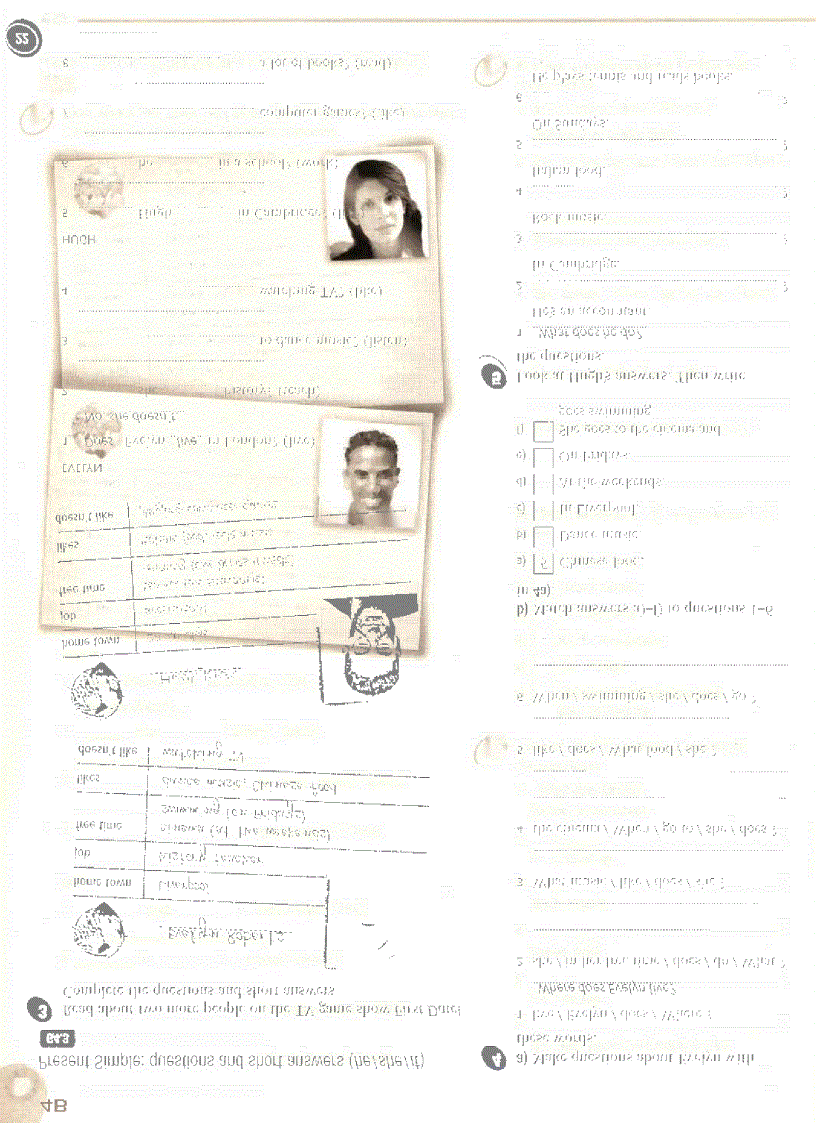 4B
Present Simple: questions and short answers (he/she/it)
G4.3
3 Read about two more people on the TV game show First Date!
Complete the questions and short answers.
Evelyn Roberts
home town Liverpool
job history teacher
free time cinema (at the weekends)
swimming (on Fridays)
likes dance music, Chinese food
doesn't like watching TV
home town
job accountant
free time
likes Italian food, rock music
doesn't like playing computer games
EVELYN
1 Does Evelyn live in London? (live)
No, she doesn't.
2 she history? (teach)
3 to dance music? (listen)
4 watching TV? (like)
HUGH
5 Hugh in Cambridge?
6 he in a school? (work)
7 computer games? (like)
8 a lot of books? (read)
22
4 a) Make questions about Evelyn with
these words.
1 live / Evelyn / does / Where ?
Where does Evelyn live?
2 she / in her free time / does / do / What ?
3 What music / like / does / she ?
4 the cinema / When / go to / she / does ?
5 like / does / What food / she ?
6 When / swimming / she / does / go ?
b) Match answers a)–f) to questions 1–6
in 4a).
a) 5 Chinese food.
b) Dance music.
c) In Liverpool.
d) At the weekends.
e) On Fridays.
f) She goes to the cinema and
goes swimming.
5 Look at Hugh's answers. Then write
the questions.
1 What does he do?
He's an accountant.
2 ?
In Cambridge.
3 ?
Rock music.
4 ?
Italian food.
5 ?
On Sundays.
6 ?
He plays tennis and reads books.